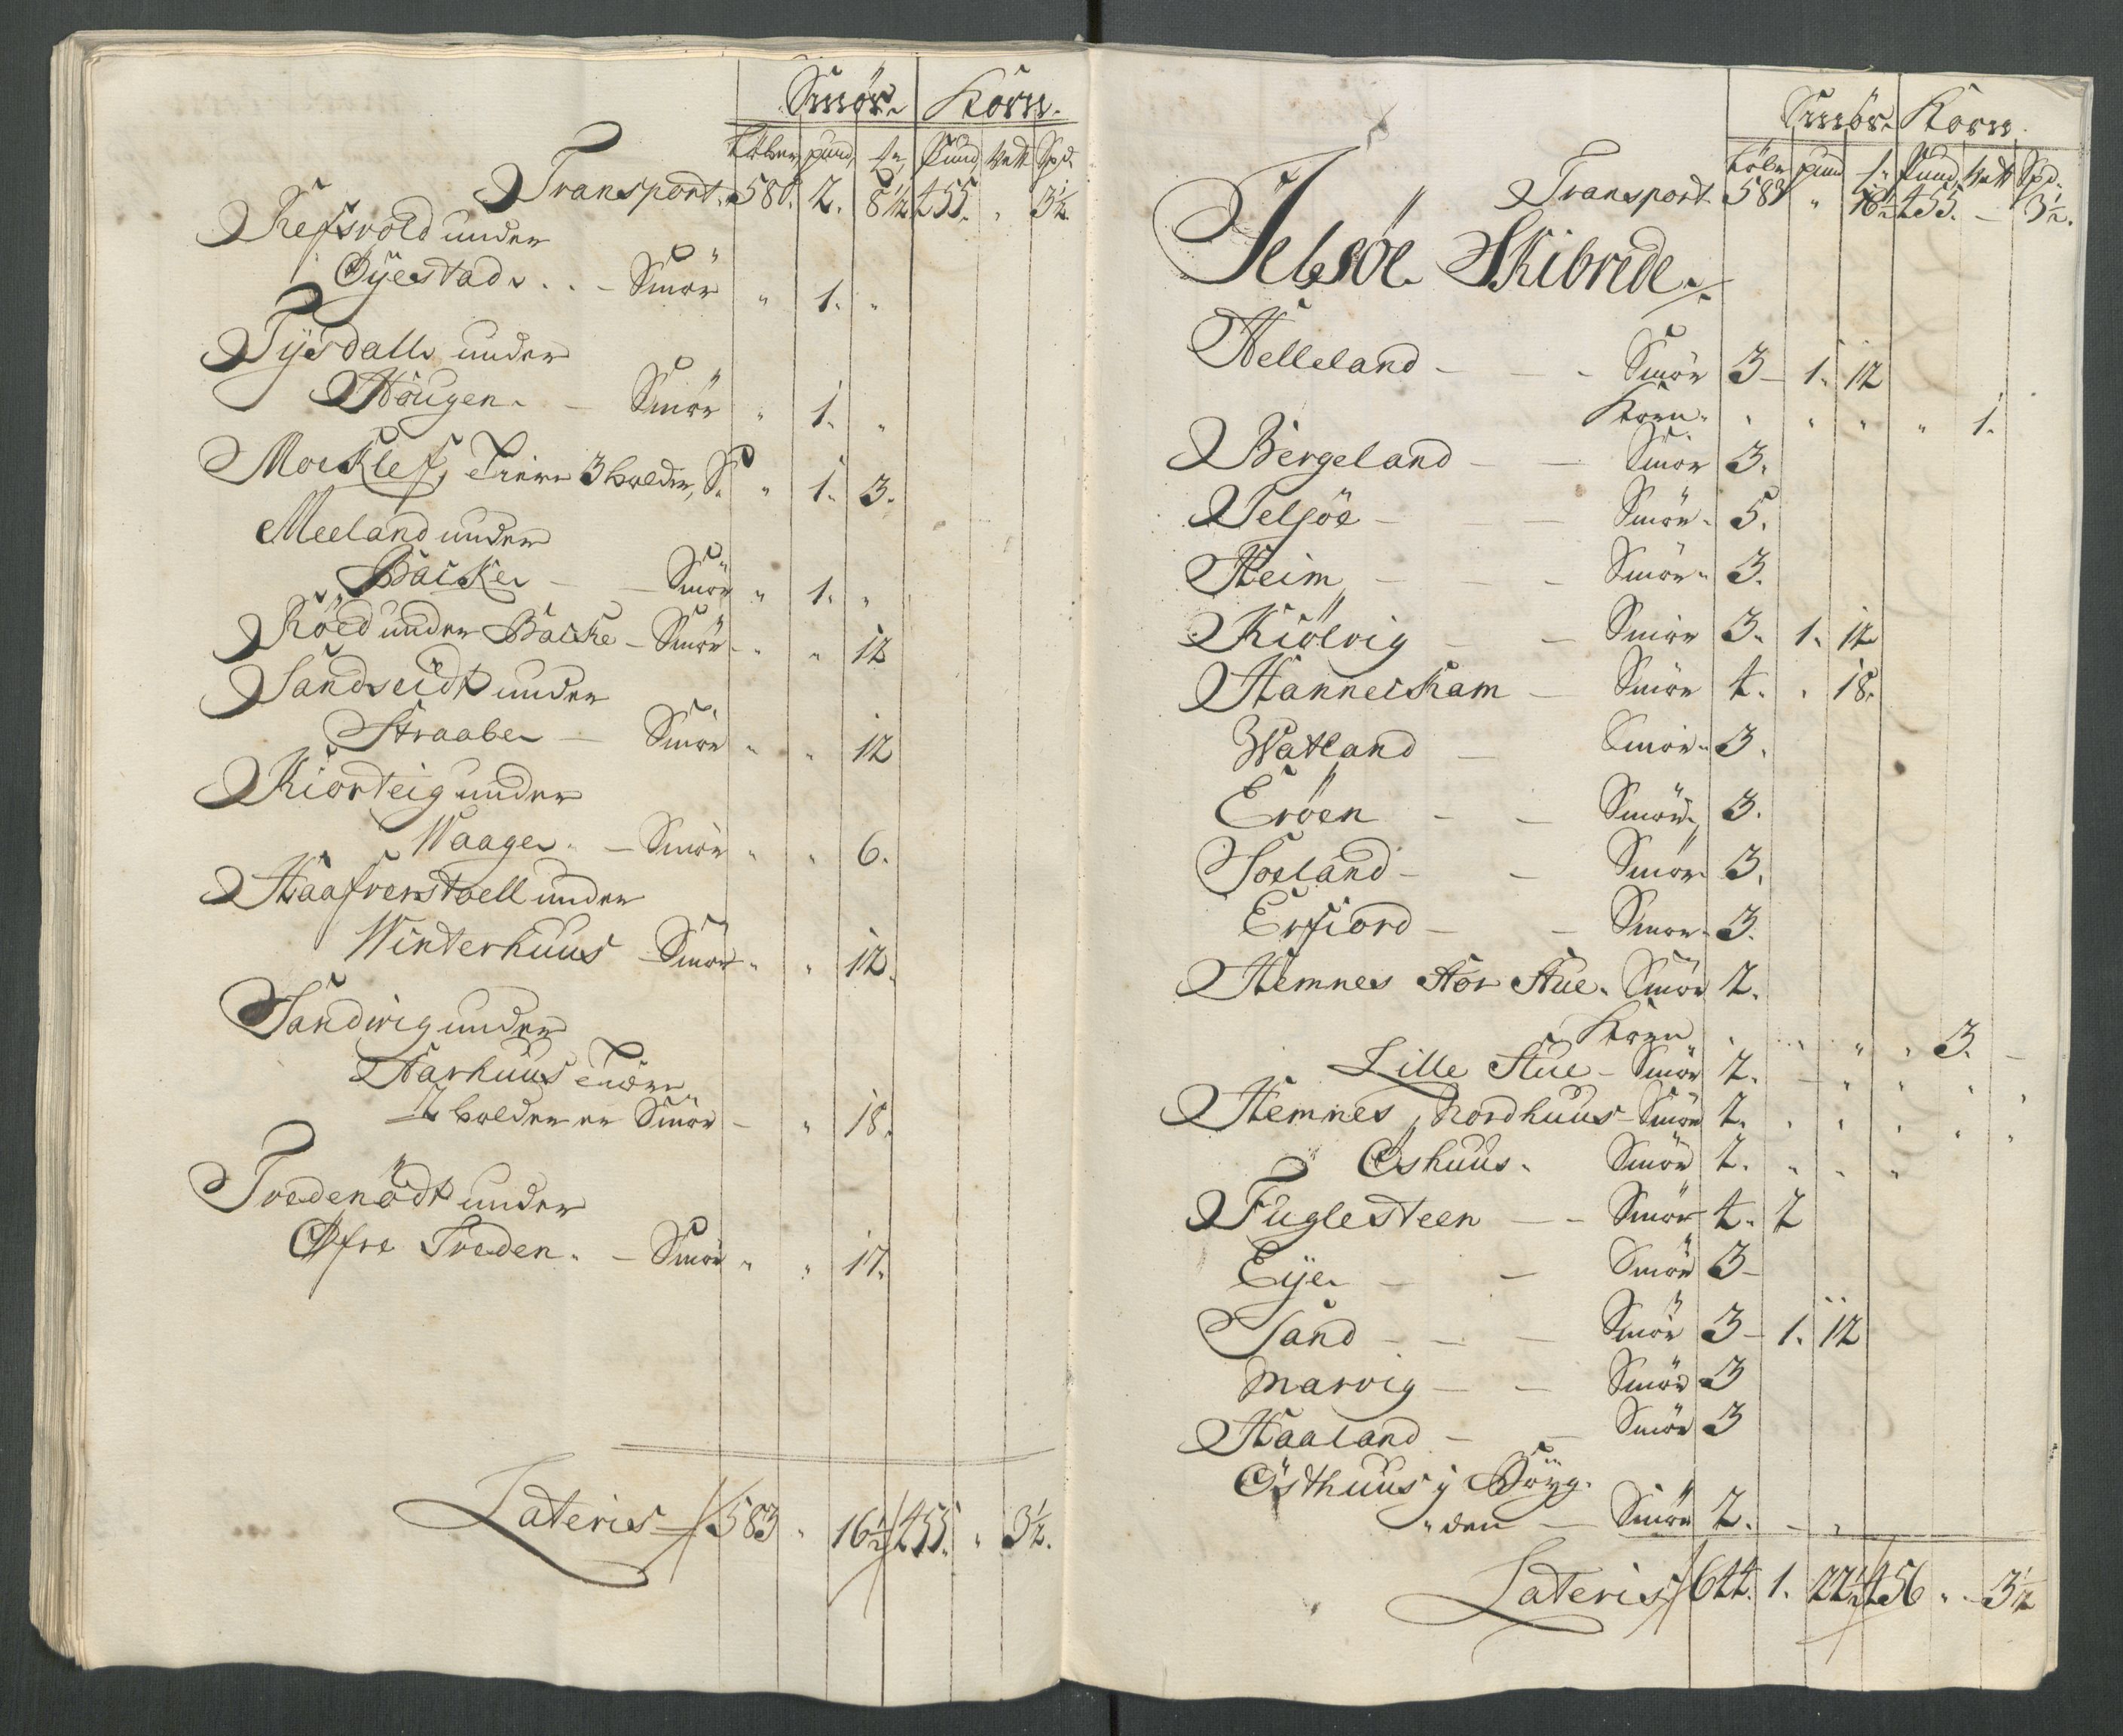 Smör. Korn.
Löber pund Pund Wett Spd.
Transport. 580. 2. 8½ 455. " 3½
Refsvold under
Öyestad . . - Smör " 1. "
Tysdall under
Hougen. - Smör " 1. "
Mocklef, 3 S. " 1. 3.
Meeland under
Backe - - Smör " 1. "
Röed under Backe - Smör - " " 12
Sandseidt under
Straabe - Smör " " 12
Kiorteig under
Waage. - Smör " " 6.
Haafrerstoell under
Winterhuus - Smör " " 12.
Sandvig under
Aarhuus
2 Smör - " 18.
Tvedenödt under
Öfre Tveden. - Smör " " 17.
Lateris 583 " 16½ 455. " 3½.
Smör. Korn.
Löber pund Pund Wett Spd.
Transport. 583 " 16½ 455. - 3½.
Jelsöe Skibrede.
Helleland - - - Smör 3 - 1. 12
Korn. " " " " 1.
Bergeland - - Smör 3.
Jelsöe - - Smör. 5.
Heim - - - Smör. 3.
Kiölvig - - Smör 3. 1. 12
Hanneckam - Smör 4. " 18.
Watland - Smör. 3.
Eröen - - Smör, 3.
Soeland - - Smör 3.
Erfiord - - Smör. 3.
Hemnes Stor Stue. Smör 2.
Korn " " " " 3. -
Lille Stue - Smör 2. - " " " "
Hemnes, Nordhuus - Smör 2. " " " " "
Öshuus. Smör 2. " " "
Fuglesteen - - Smör 4. 2
Eye - - Smör 3 -
Sand - - - Smör 3 - 1. 12
Marvig - - Smör 3
Haaland - - Smör 3
Östhuus i Böyg-
"den - Smör 2. - "
Lateris 644. 1. 22½ 456 " - 3½